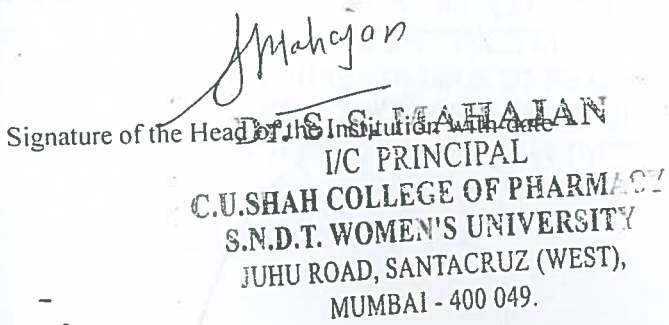 SMahajan
Signature of the Head of the Institution with date
Dr. S. S. MAHAJAN
I/C PRINCIPAL
C.U.SHAH COLLEGE OF PHARMACY
S.N.D.T. WOMEN'S UNIVERSITY
JUHU ROAD, SANTACRUZ (WEST),
MUMBAI - 400 049.